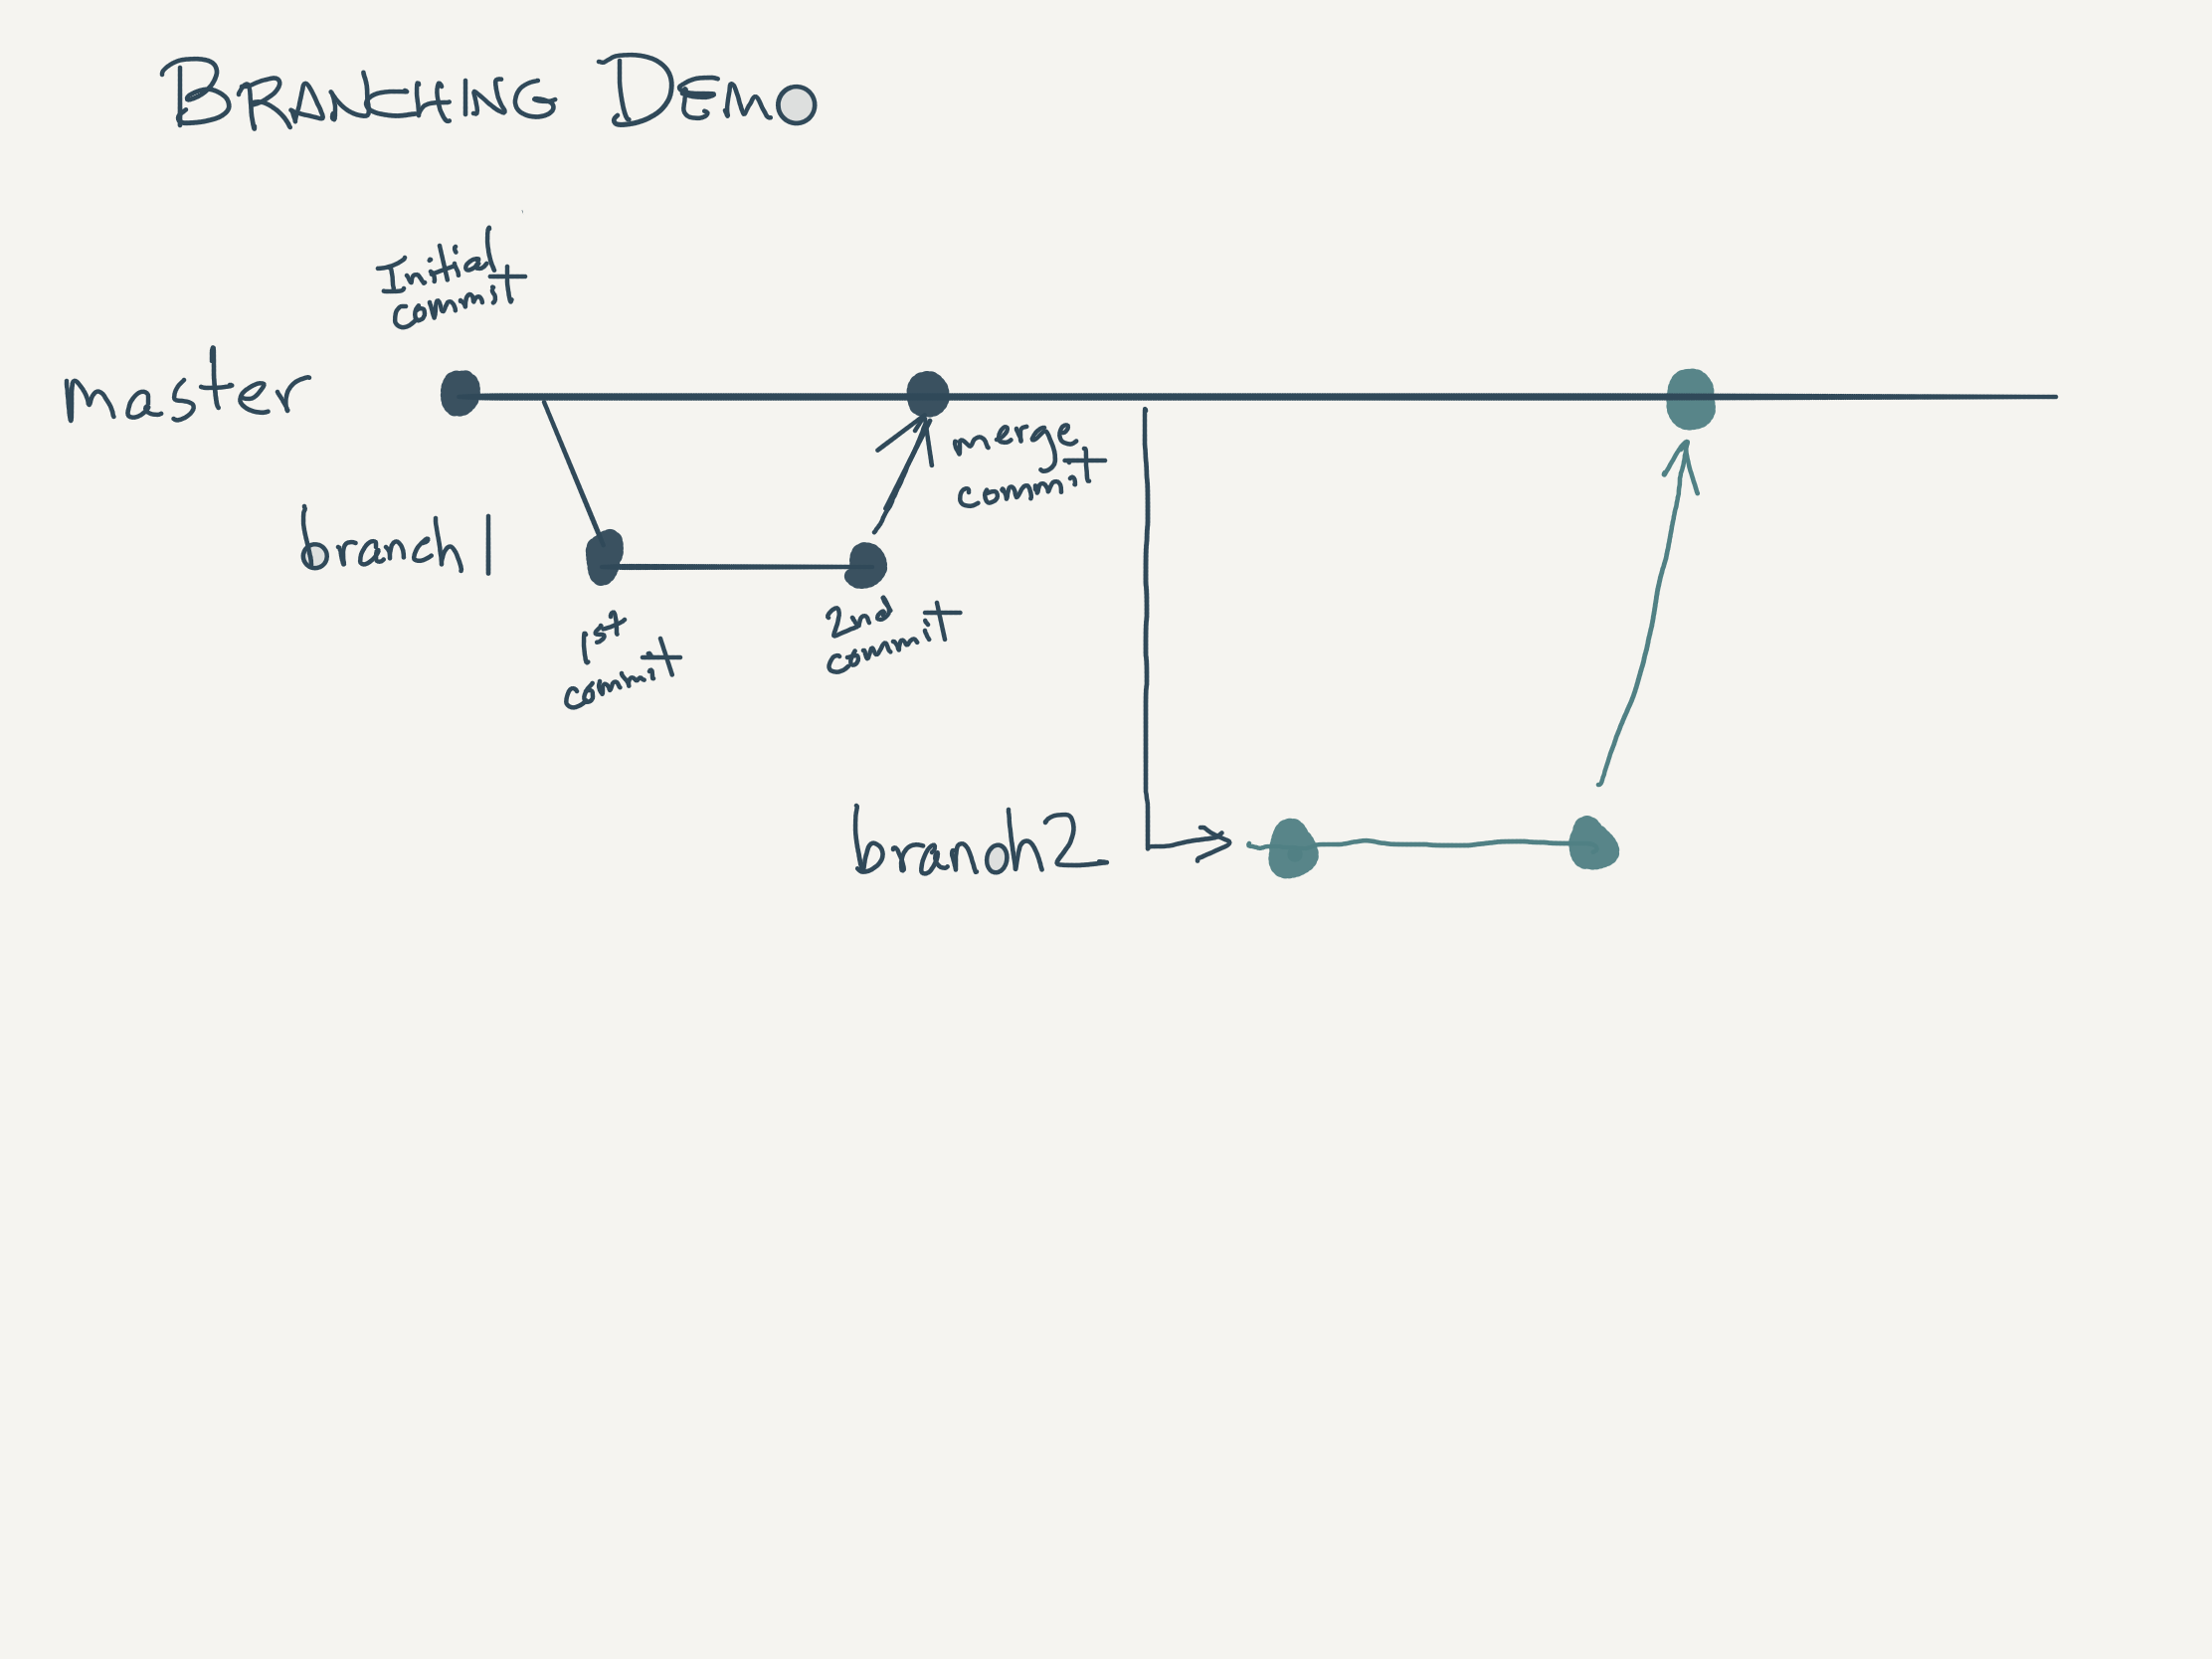 BRANCHING DEMO
Initial
commit
master
merge
commit
branch1
1st
commit
2nd
commit
branch2